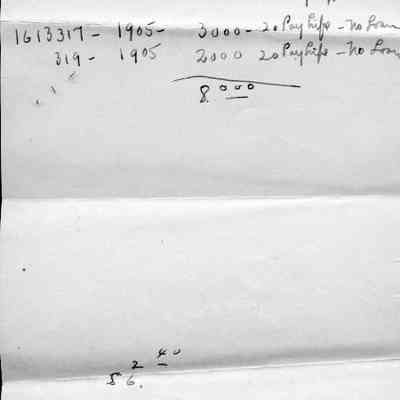 1613317 - 1905 - 3000 - 20 Pay Life - No Loan
319 - 1905 2000 20 Pay Life - No Loan
8000
2 40
56.